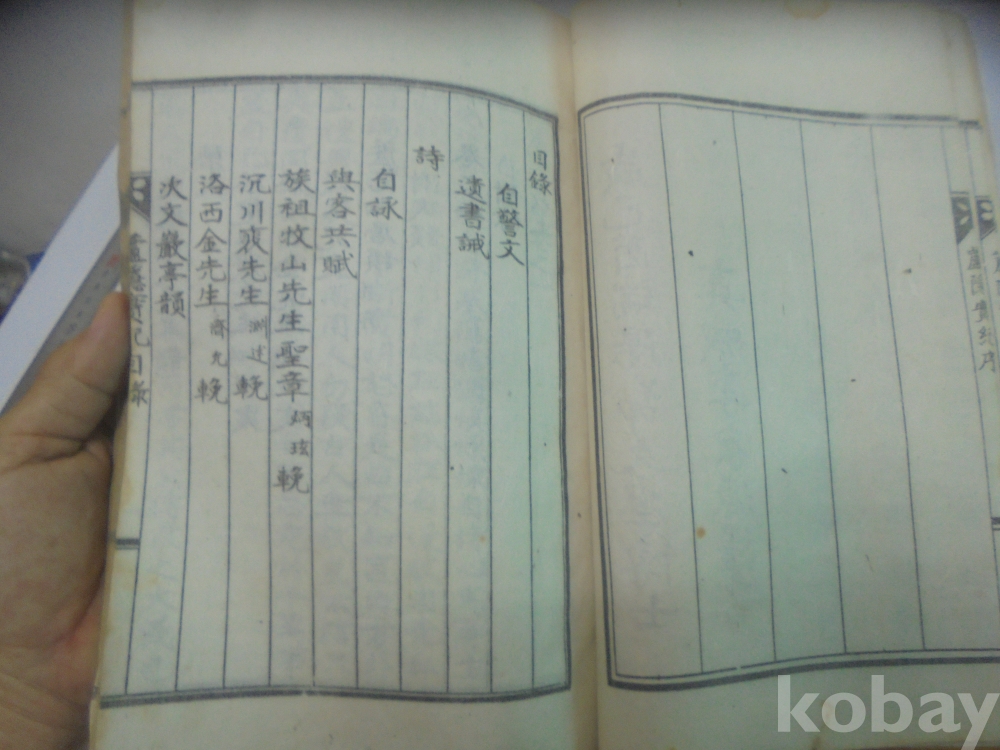 目錄
自警文
遺書誡
詩
自詠
與客共賦
族祖牧山先生聖章 炳玹 輓
沉川裴先生 淵述 輓
洛西金先生 齊九 輓
次文巖亭韻
實記目錄
實紀序
kobay